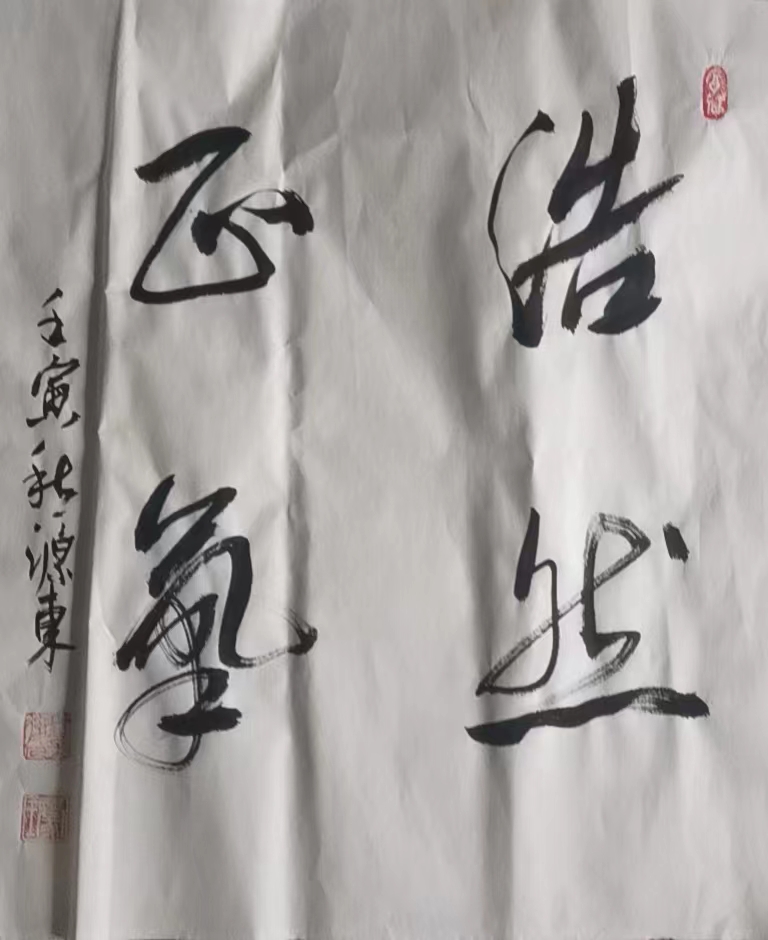 浩然
正氣
壬寅秋源東